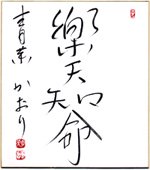 樂天知命
青葉かおり